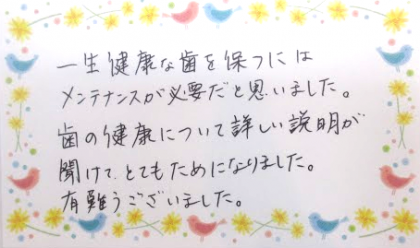 一生健康な歯を保つには
メンテナンスが必要だと思いました。
歯の健康について詳しい説明が
聞けて、とてもためになりました。
有難うございました。